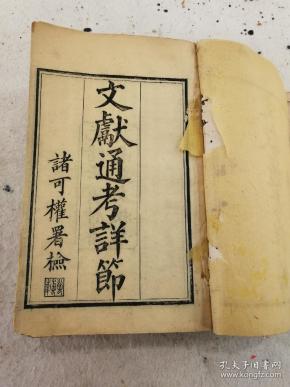 文獻通考詳節
諸可權署檢
孔夫子旧书网